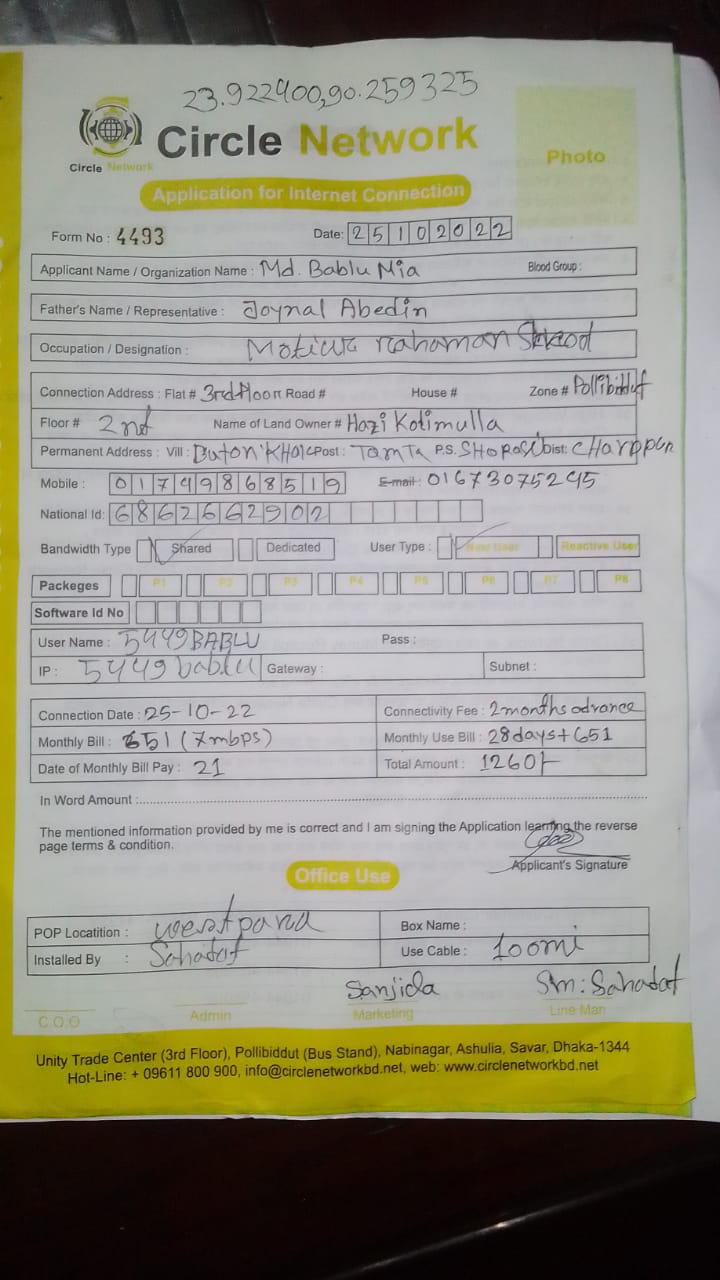 23.922400,90.259325
Circle Network
Circle Network
Photo
Application for Internet Connection
Form No : 4493 Date: 25102022
Applicant Name / Organization Name : Md. Bablu Mia Blood Group :
Father's Name / Representative : Joynal Abedin
Occupation / Designation : Motiur rahaman
Connection Address : Flat # 3rd Floor Road # House # Zone # Pollibiddut
Floor # 2nd Name of Land Owner # Hazi Kolimulla
Permanent Address : Vill : Post : TamTa P.S. Dist:
Mobile : 01749868519 E-mail : 01673075245
National Id: 6862662902
Bandwidth Type Shared Dedicated User Type : New User Reactive User
Packeges P1 P2 P3 P4 P5 P6 P7 P8
Software Id No
User Name : 5449BABLU Pass :
IP : 5449bablu Gateway : Subnet :
Connection Date : 25-10-22 Connectivity Fee : 2months advance
Monthly Bill : 651 (7mbps) Monthly Use Bill : 28days+651
Date of Monthly Bill Pay : 21 Total Amount : 1260/-
In Word Amount :
The mentioned information provided by me is correct and I am signing the Application learning the reverse
page terms & condition.
Applicant's Signature
Office Use
POP Locatition : westpara Box Name :
Installed By : Sahadat Use Cable : 100mi
Sanjida Sm: Sahadat
C.O.O Admin Marketing Line Man
Unity Trade Center (3rd Floor), Pollibiddut (Bus Stand), Nabinagar, Ashulia, Savar, Dhaka-1344
Hot-Line: + 09611 800 900, info@circlenetworkbd.net, web: www.circlenetworkbd.net